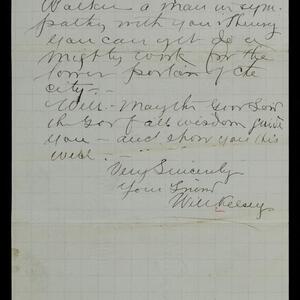 Walker a man in sym-
pathy with your thing
you can yet do a
mighty work for the
lower portion of the
city. -
Will - May the
the God of all wisdom guide
you - and show you His
will. -
Very Sincerely
Your friend
Will Kelsey